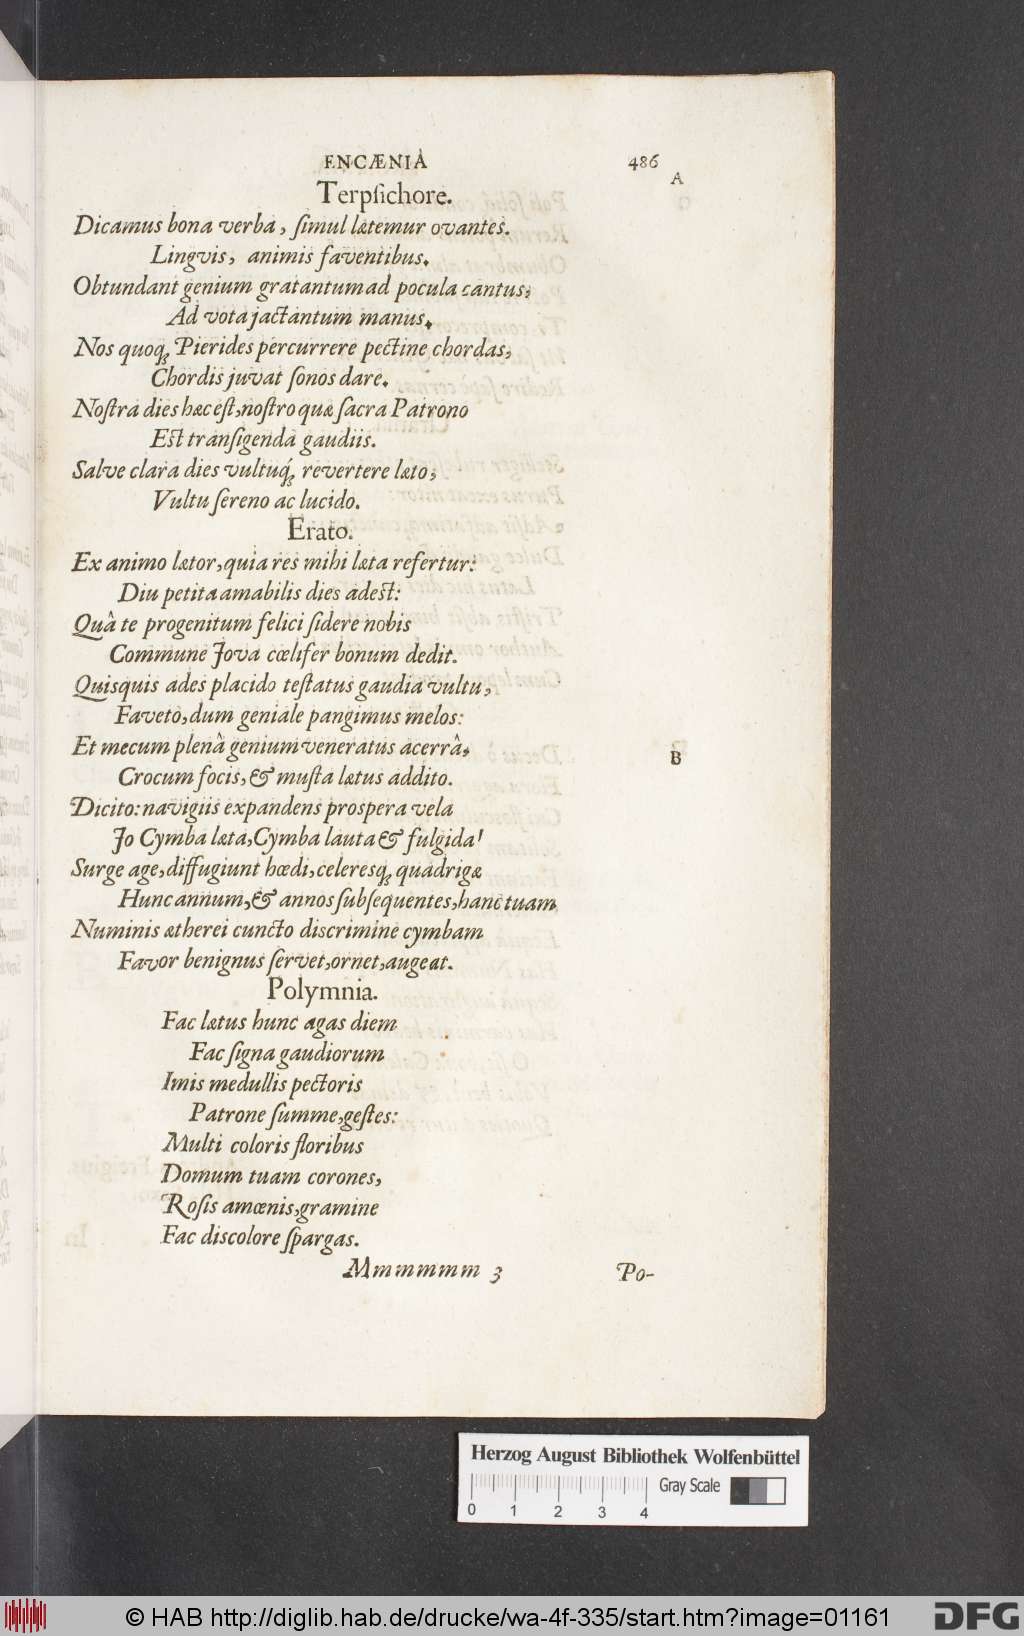 ENCÆNIA 486
A
Terpſichore.
Dicamus bona verba, ſimul lætemur ovantes.
Lingvis, animis faventibus.
Obtundant genium gratantum ad pocula cantus;
Ad vota jactantum manus.
Nos quoq; Pierides percurrere pectine chordas,
Chordis juvat ſonos dare.
Noſtra dies hæc eſt, noſtro quæ ſacra Patrono
Eſt tranſigenda gaudiis.
Salve clara dies vultuq́; revertere læto,
Vultu ſereno ac lucido.
Erato.
Ex animo lætor, quia res mihi læta refertur:
Diu petita amabilis dies adeſt:
Quâ te progenitum felici ſidere nobis
Commune Jova cœlifer bonum dedit.
Quisquis ades placido teſtatus gaudia vultu,
Faveto, dum geniale pangimus melos:
Et mecum plenâ genium veneratus acerrâ,
Crocum focis, & muſta lætus addito.
B
Dicito: navigiis expandens proſpera vela
Jo Cymba læta, Cymba lauta & fulgida!
Surge age, diffugiunt hœdi, celeresq; quadrigæ
Hunc annum, & annos ſubſequentes, hanc tuam
Numinis ætherei cuncto discrimine cymbam
Favor benignus ſervet, ornet, augeat.
Polymnia.
Fac lætus hunc agas diem
Fac ſigna gaudiorum
Imis medullis pectoris
Patrone ſumme, geſtes:
Multi coloris floribus
Domum tuam corones,
Roſis amœnis, gramine
Fac discolore ſpargas.
Mmmmmm 3 Po-
Herzog August Bibliothek Wolfenbüttel
Gray Scale
0 1 2 3 4
© HAB http://diglib.hab.de/drucke/wa-4f-335/start.htm?image=01161
DFG